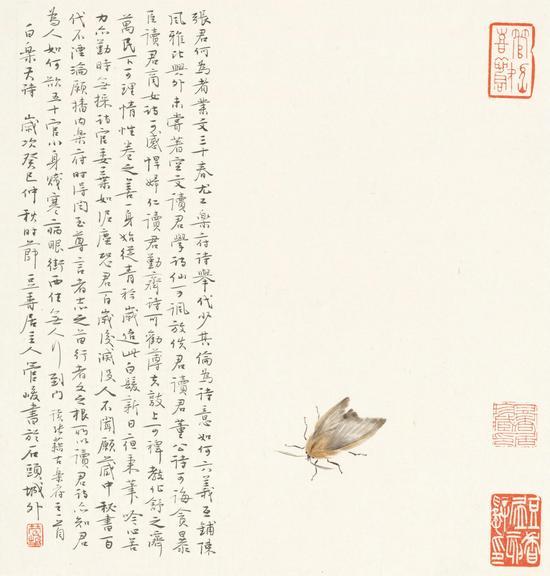 張君何為者業文三十春尤工樂府詩舉代少其倫為詩意如何六義互鋪陳
風雅比興外未嘗著空文讀君學詩仙可諷放佚君讀君董公詩可誨貪暴
臣讀君商女詩可感悍婦仁讀君勤齊詩可勸薄夫敦上可裨教化舒之濟
萬民下可理情性卷之善一身始從青衿歲迨此白髮新日秉筆吟心苦
力亦勤時無採詩官委棄如泥塵恐君百歲後滅沒人不聞願藏中秘書百
代不湮淪願播內樂府時得聞至尊言者志之苗行者文之根所以讀君詩亦知君
為人如何欲五十官小身賤病眼街西住無人行到門 讀張籍古樂府
白樂天詩 歲次癸巳仲秋時節豆壽居主人管峻書於石頭城外